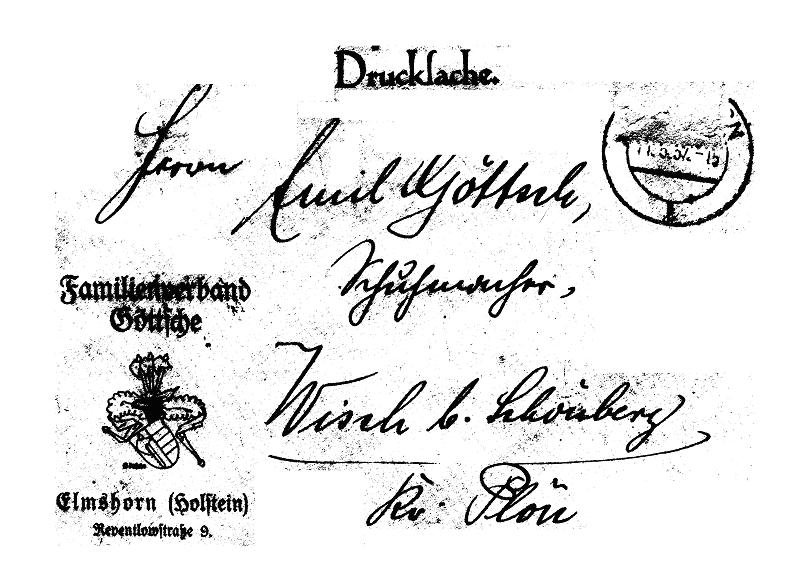 Drucksache.
Herrn
Emil Göttsch,
Schuhmacher,
Wisch b. Schönberg
Kr. Plön
Familienverband
Göttsche
Elmshorn (Holstein)
Reventlowstraße 9.